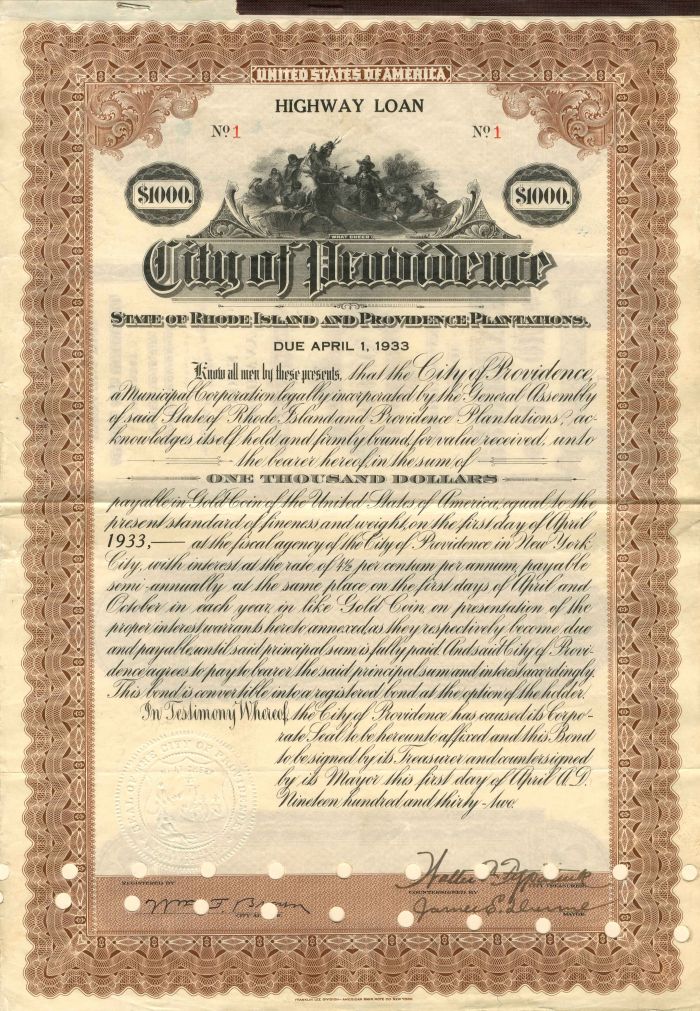 UNITED STATES OF AMERICA
HIGHWAY LOAN
Nº 1 Nº 1
$1000. $1000.
WHAT CHEER
City of Providence
STATE OF RHODE ISLAND AND PROVIDENCE PLANTATIONS.
DUE APRIL 1, 1933
Know all men by these presents, that the City of Providence,
a Municipal Corporation legally incorporated by the General Assembly
of said State of Rhode Island and Providence Plantations, ac-
knowledges itself held and firmly bound, for value received, unto
the bearer hereof, in the sum of
ONE THOUSAND DOLLARS
payable in Gold Coin of the United States of America, equal to the
present standard of fineness and weight, on the first day of April
1933,— at the fiscal agency of the City of Providence in New York
City, with interest at the rate of 4½ per centum per annum, payable
semi-annually at the same place on the first days of April and
October in each year, in like Gold Coin, on presentation of the
proper interest warrants hereto annexed, as they respectively become due
and payable, until said principal sum is fully paid. And said City of Provi-
dence agrees to pay to bearer the said principal sum and interest accordingly.
This bond is convertible into a registered bond at the option of the holder.
In Testimony Whereof, the City of Providence has caused its Corpo-
rate Seal to be hereunto affixed and this Bond
to be signed by its Treasurer and countersigned
by its Mayor this first day of April A.D.
Nineteen hundred and thirty-two.
SEAL OF THE CITY OF PROVIDENCE
REGISTERED BY
CITY TREASURER.
COUNTERSIGNED BY
James E. Dunne
MAYOR.
FRANKLIN LEE DIVISION—AMERICAN BANK NOTE CO. NEW YORK.